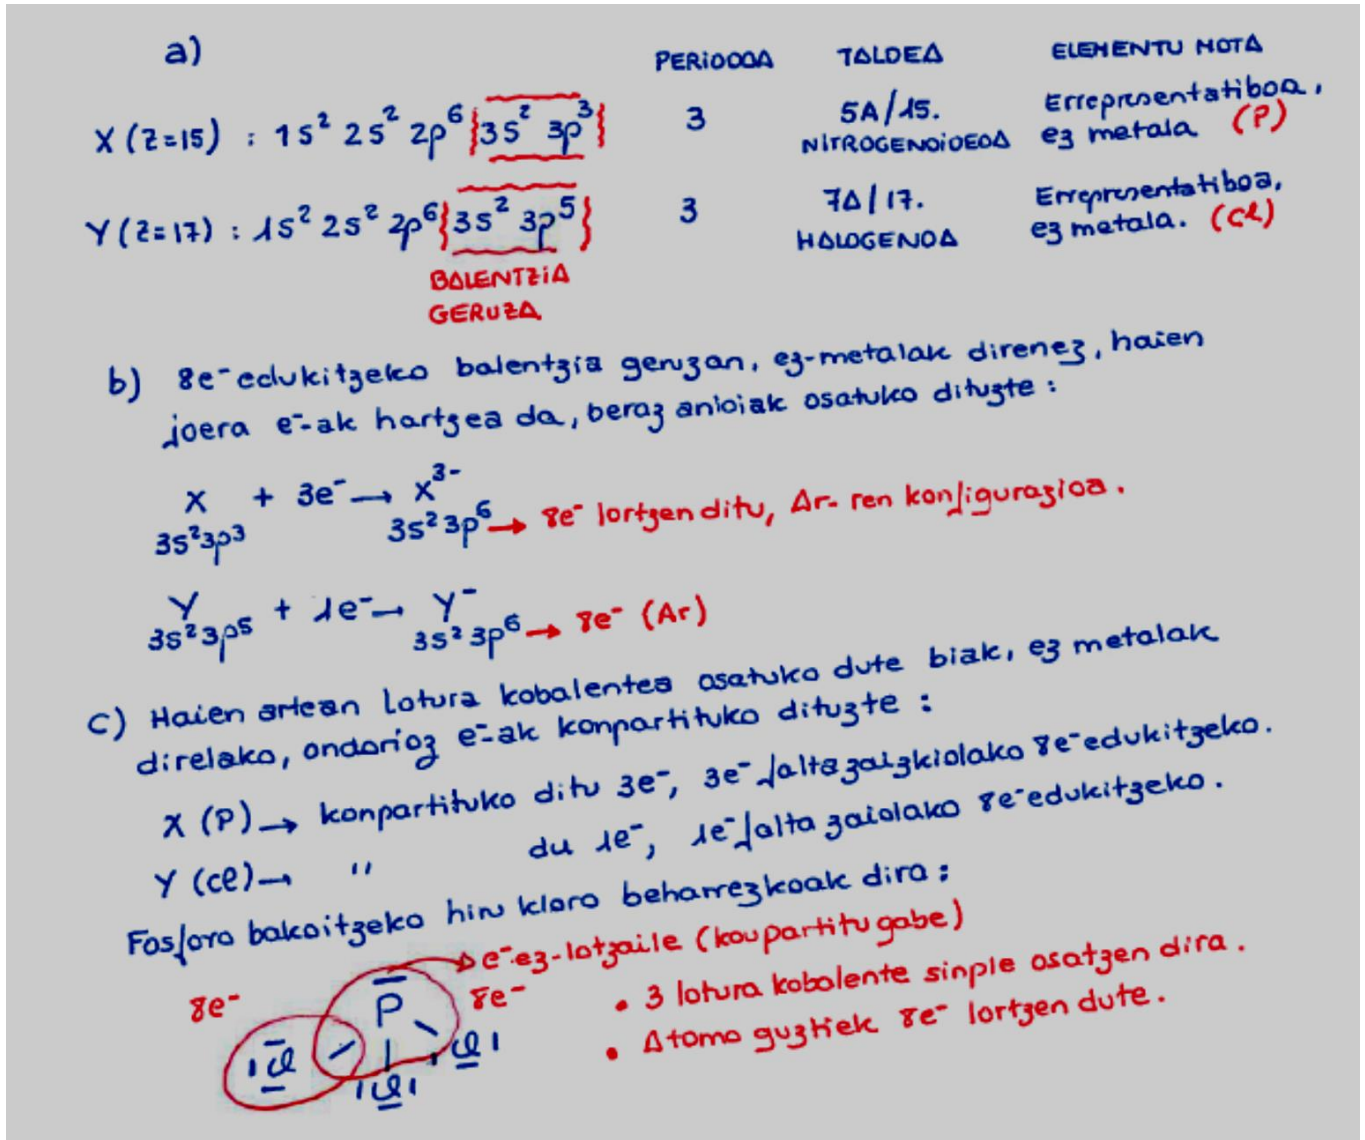 a)
PERIODOA TALDEA ELEMENTU MOTA
X (Z=15) : 1s² 2s² 2p⁶ {3s² 3p³} 3 5A/15. Errepresentatiboa,
NITROGENOIDEOA ez metala (P)
Y (Z=17) : 1s² 2s² 2p⁶ {3s² 3p⁵} 3 7A/17. Errepresentatiboa,
HALOGENOA ez metala. (Cl)
BALENTZIA
GERUZA
b) 8e⁻ edukitzeko balentzia geruzan, ez-metalak direnez, haien
joera e⁻-ak hartzea da, beraz anioiak osatuko dituzte :
X + 3e⁻ → X³⁻
3s²3p³ 3s²3p⁶ → 8e⁻ lortzen ditu, Ar-ren konfigurazioa.
Y + 1e⁻ → Y⁻
3s²3p⁵ 3s²3p⁶ → 8e⁻ (Ar)
c) Haien artean lotura kobalentea osatuko dute biak, ez metalak
direlako, ondorioz e⁻-ak konpartituko dituzte :
X (P) → konpartituko ditu 3e⁻, 3e⁻ falta zaizkiolako 8e⁻ edukitzeko.
Y (Cl) → " du 1e⁻, 1e⁻ falta zaiolako 8e⁻ edukitzeko.
Fosforo bakoitzeko hiru kloro beharrezkoak dira :
e⁻ ez-lotzaile (konpartitu gabe)
8e⁻ P 8e⁻ • 3 lotura kobalente sinple osatzen dira.
Cl Cl • Atomo guztiek 8e⁻ lortzen dute.
Cl